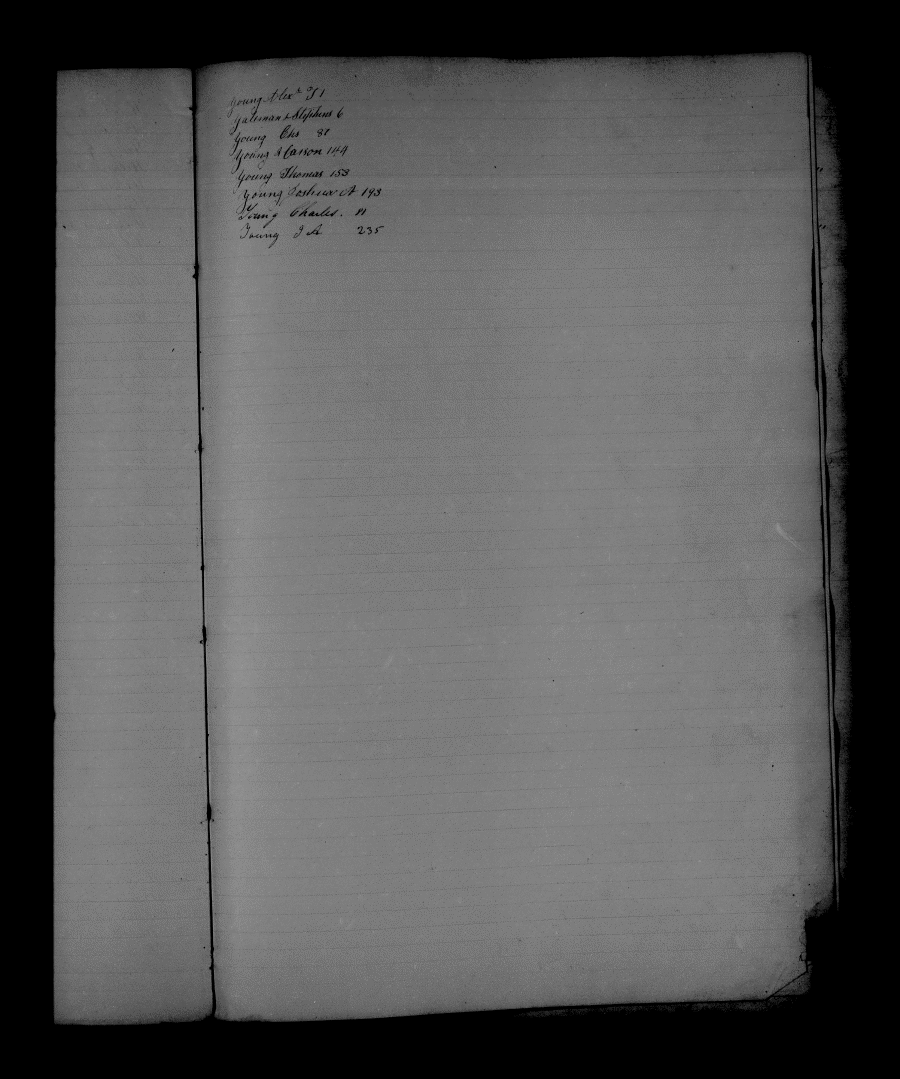 Young Alexr 1
Yateman & Stephens 6
Young Chs 81
Young & Carson 144
Young Thomas 153
Young Joshua A 193
Young Charles. "
Young J A 235